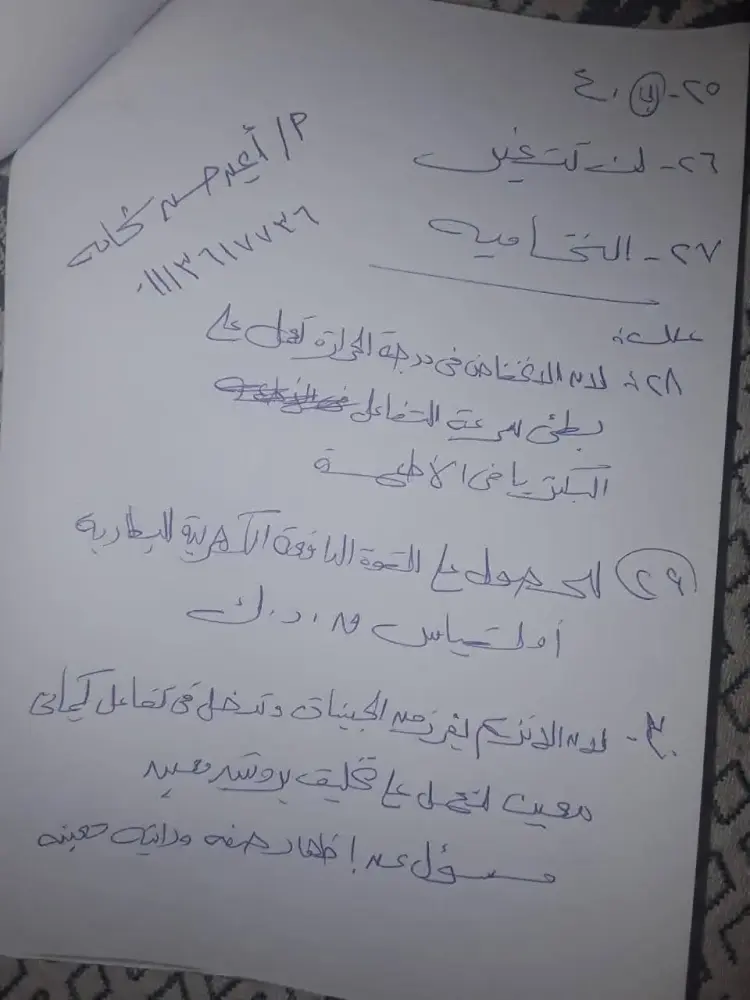 ٢٥- (ب) ٤٠
٢٦- لن تتغير
٢٧- النخامية
م/ أيمن حسن
٠١١١٣٦١٧٧٣٦
علل:
٢٨: لان الانخفاض فى درجة الحرارة تعمل على
بطئ سرعة التفاعل
البكتريا فى الأطعمة
(٢٩) للحصول على القوة الدافعة الكهربية للبطارية
أو لقياس ق.د.ك
٣٠- لان الانزيم يفرز من الجينات وتدخل فى تفاعل كيمائى
معين لتعمل على تخليق بروتين معين
مسؤل عن إظهار صفه وراثيه معينه